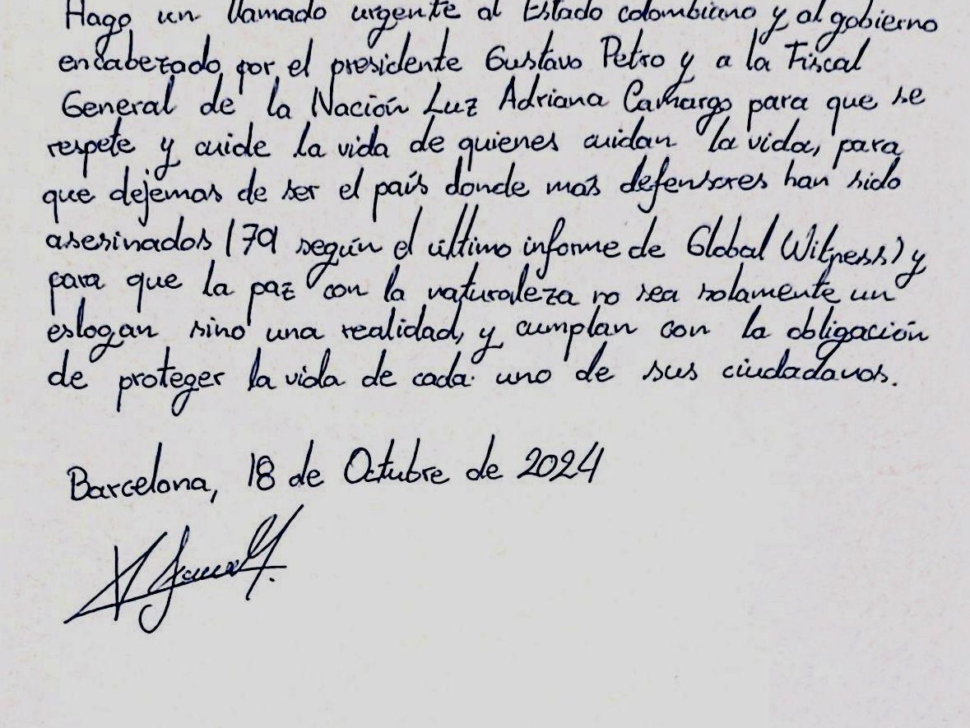 Hago un llamado urgente al Estado colombiano y al gobierno
encabezado por el presidente Gustavo Petro y a la Fiscal
General de la Nación Luz Adriana Camargo para que se
respete y cuide la vida de quienes cuidan la vida, para
que dejemos de ser el país donde más defensores han sido
asesinados (79 según el último informe de Global Witness) y
para que la paz con la naturaleza no sea solamente un
eslogan sino una realidad, y cumplan con la obligación
de proteger la vida de cada uno de sus ciudadanos.
Barcelona, 18 de Octubre de 2024